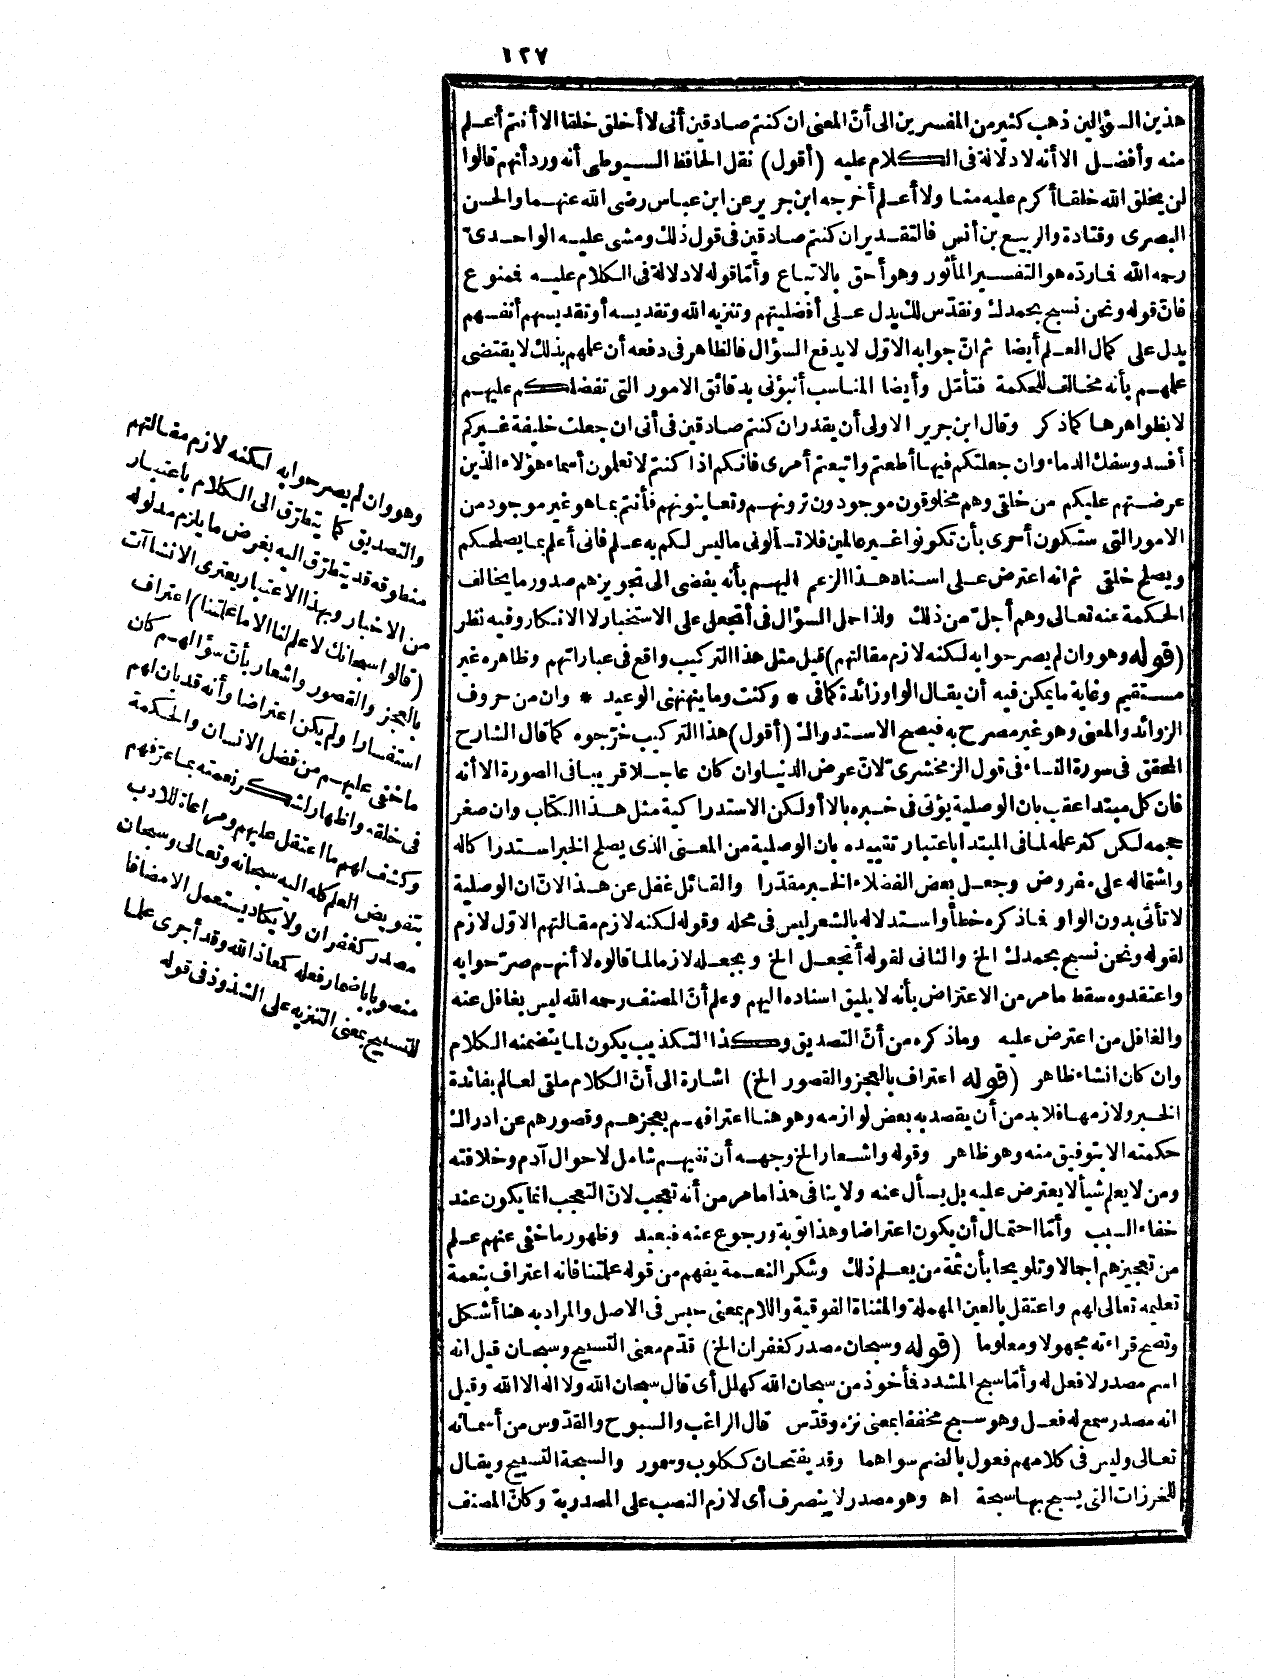 ١٢٧
هذين السؤالين ذهب كثير من المفسرين الى أنّ المعنى ان كنتم صادقين أنى لا أخلق خلقا الا أنتم أعلم
منه وأفضل الا أنه لا دلالة فى الكلام عليه (أقول) نقل الحافظ السيوطى أنه ورد أنهم قالوا
لن يخلق الله خلقا أكرم عليه منا ولا أعلم أخرجه ابن جرير عن ابن عباس رضى الله عنهما والحسن
البصرى وقتادة والربيع بن أنس فالتقدير ان كنتم صادقين فى قول ذلك ومشى عليه الواحدىّ
رحمه الله فماردّه هو التفسير المأثور وهو أحق بالاتباع وأمّا قوله لا دلالة فى الكلام عليه فممنوع
فانّ قوله ونحن نسبح بحمدك ونقدّس لك يدل على أفضليتهم وتنزيه الله وتقديسه أو تقديسهم أنفسهم
يدل على كمال العلم أيضا ثم انّ جوابه الاوّل لا يدفع السؤال فالظاهر فى دفعه أن علمهم بذلك لا يقتضى
علمهم بأنه مخالف للحكمة فتأمّل وأيضا المناسب أنبؤنى بدقائق الامور التى تفضلكم عليهم
لا بظواهرها كما ذكر وقال ابن جرير الاولى أن يقدر ان كنتم صادقين فى أنى ان جعلت خليفة غيركم
أفسد وسفك الدماء وان جعلتكم فيها أطعتم واتبعتم أمرى فانكم اذا كنتم لا تعلمون أسماء هؤلاء الذين
عرضتهم عليكم من خلقى وهم مخلوقون موجودون ترونهم وتعاينونهم فأنتم بما هو غير موجود من
الامور التى ستكون أحرى بأن تكونوا غير عالمين فلا تسألونى ما ليس لكم به علم فانى أعلم بما يصلحكم
ويصلح خلقى ثم انه اعترض على اسناد هذا الزعم اليهم بأنه يفضى الى تجويزهم صدور ما يخالف
الحكمة عنه تعالى وهم أجلّ من ذلك ولذا حمل السؤال فى أتجعل على الاستخبار لا الانكار وفيه نظر
(قوله وهو وان لم يصرحوا به لكنه لازم مقالتهم) قيل مثل هذا التركيب واقع فى عباراتهم وظاهره غير
مستقيم وغاية ما يمكن فيه أن يقال الواو زائدة كما فى * وكنت وما ينهنهنى الوعيد * وان من حروف
الزوائد والمعنى وهو غير مصرح به فيصح الاستدراك (أقول) هذا التركيب خرّجوه كما قال الشارح
المحقق فى سورة النساء فى قول الزمخشرىّ لانّ عرض الدنيا وان كان عاجلا قريبا فى الصورة الا أنه
فان كل مبتدا عقب بان الوصلية يؤتى فى خبره بالا أو لكن الاستدراكية مثل هذا الكتاب وان صغر
حجمه لكن كثر علمه لما فى المبتدا باعتبار تقييده بان الوصلية من المعنى الذى يصلح الخبر استدراكا له
واشتماله على مفروض وجعل بعض الفضلاء الخبر مقدّرا والقائل غفل عن هذا الانّ ان الوصلية
لا تأتى بدون الواو فما ذكره خطأ واستدلاله بالشعر ليس فى محله وقوله لكنه لازم مقالتهم الاوّل لازم
لقوله ونحن نسبح بحمدك الخ والثانى لقوله أتجعل الخ وبجعله لازما لما قالوه لا أنهم صرّحوا به
واعتقدوه سقط ما مر من الاعتراض بأنه لا يليق اسناده اليهم وعلم أنّ المصنف رحمه الله ليس بغافل عنه
والغافل من اعترض عليه وما ذكره من أنّ التصديق وكذا التكذيب يكون لما يتضمنه الكلام
وان كان انشاء ظاهر (قوله اعتراف بالعجز والقصور الخ) اشارة الى أنّ الكلام ملقى لعالم بفائدة
الخبر ولازمها فلا بد من أن يقصد به بعض لوازمه وهو هنا اعترافهم بعجزهم وقصورهم عن ادراك
حكمته الا بتوفيق منه وهو ظاهر وقوله واشعار الخ وجهه أن نفيهم شامل لاحوال آدم وخلافته
ومن لا يعلم شيأ لا يعترض عليه بل يسأل عنه ولا ينافى هذا ما مر من أنه تعجب لانّ التعجب انما يكون عند
خفاء السبب وأمّا احتمال أن يكون اعتراضا وهذا توبة ورجوع عنه فبعيد وظهور ما خفى عنهم علم
من تعجيزهم اجمالا وتلويحا بأن ثمة من يعلم ذلك وشكر النعمة يفهم من قوله علمتنا فانه اعتراف بنعمة
تعليمه تعالى لهم واعتقل بالعين المهملة والمثناة الفوقية واللام بمعنى حبس فى الاصل والمراد به هنا أشكل
وتصح قراءته مجهولا ومعلوما (قوله وسبحان مصدر كغفران الخ) قدّم معنى التسبيح وسبحان قيل انه
اسم مصدر لا فعل له وأمّا سبح المشدد فمأخوذ من سبحان الله كهلل أى قال سبحان الله ولا اله الا الله وقيل
انه مصدر سمع له فعل وهو سبح مخففا بمعنى نزه وقدّس قال الراغب والسبوح والقدّوس من أسمائه
تعالى وليس فى كلامهم فعول بالضم سواهما وقد يفتحان ككلوب وسمور والسبحة التسبيح ويقال
للخرزات التى يسبح بها سبحة اه وهو مصدر لا ينصرف أى لازم النصب على المصدرية وكأنّ المصنف
وهو وان لم يصرحوا به لكنه لازم مقالتهم
والتصديق كما يتطرّق الى الكلام باعتبار
منطوقه قد يتطرّق اليه بغرض ما يلزم مدلوله
من الاخبار وبهذا الاعتبار يعترى الانشاآت
(قالوا سبحانك لا علم لنا الا ما علمتنا) اعتراف
بالعجز والقصور واشعار بأنّ سؤالهم كان
استفسارا ولم يكن اعتراضا وأنه قد بان لهم
ما خفى عليهم من فضل الانسان والحكمة
فى خلقه واظهار لشكر نعمته بما عرّفهم
وكشف لهم ما اعتقل عليهم ومراعاة للادب
بتفويض العلم كله اليه سبحانه وتعالى وسبحان
مصدر كغفران ولا يكاد يستعمل الا مضافا
منصوبا باضمار فعله كمعاذ الله وقد أجرى علما
للتسبيح بمعنى التنزيه على الشذوذ فى قوله